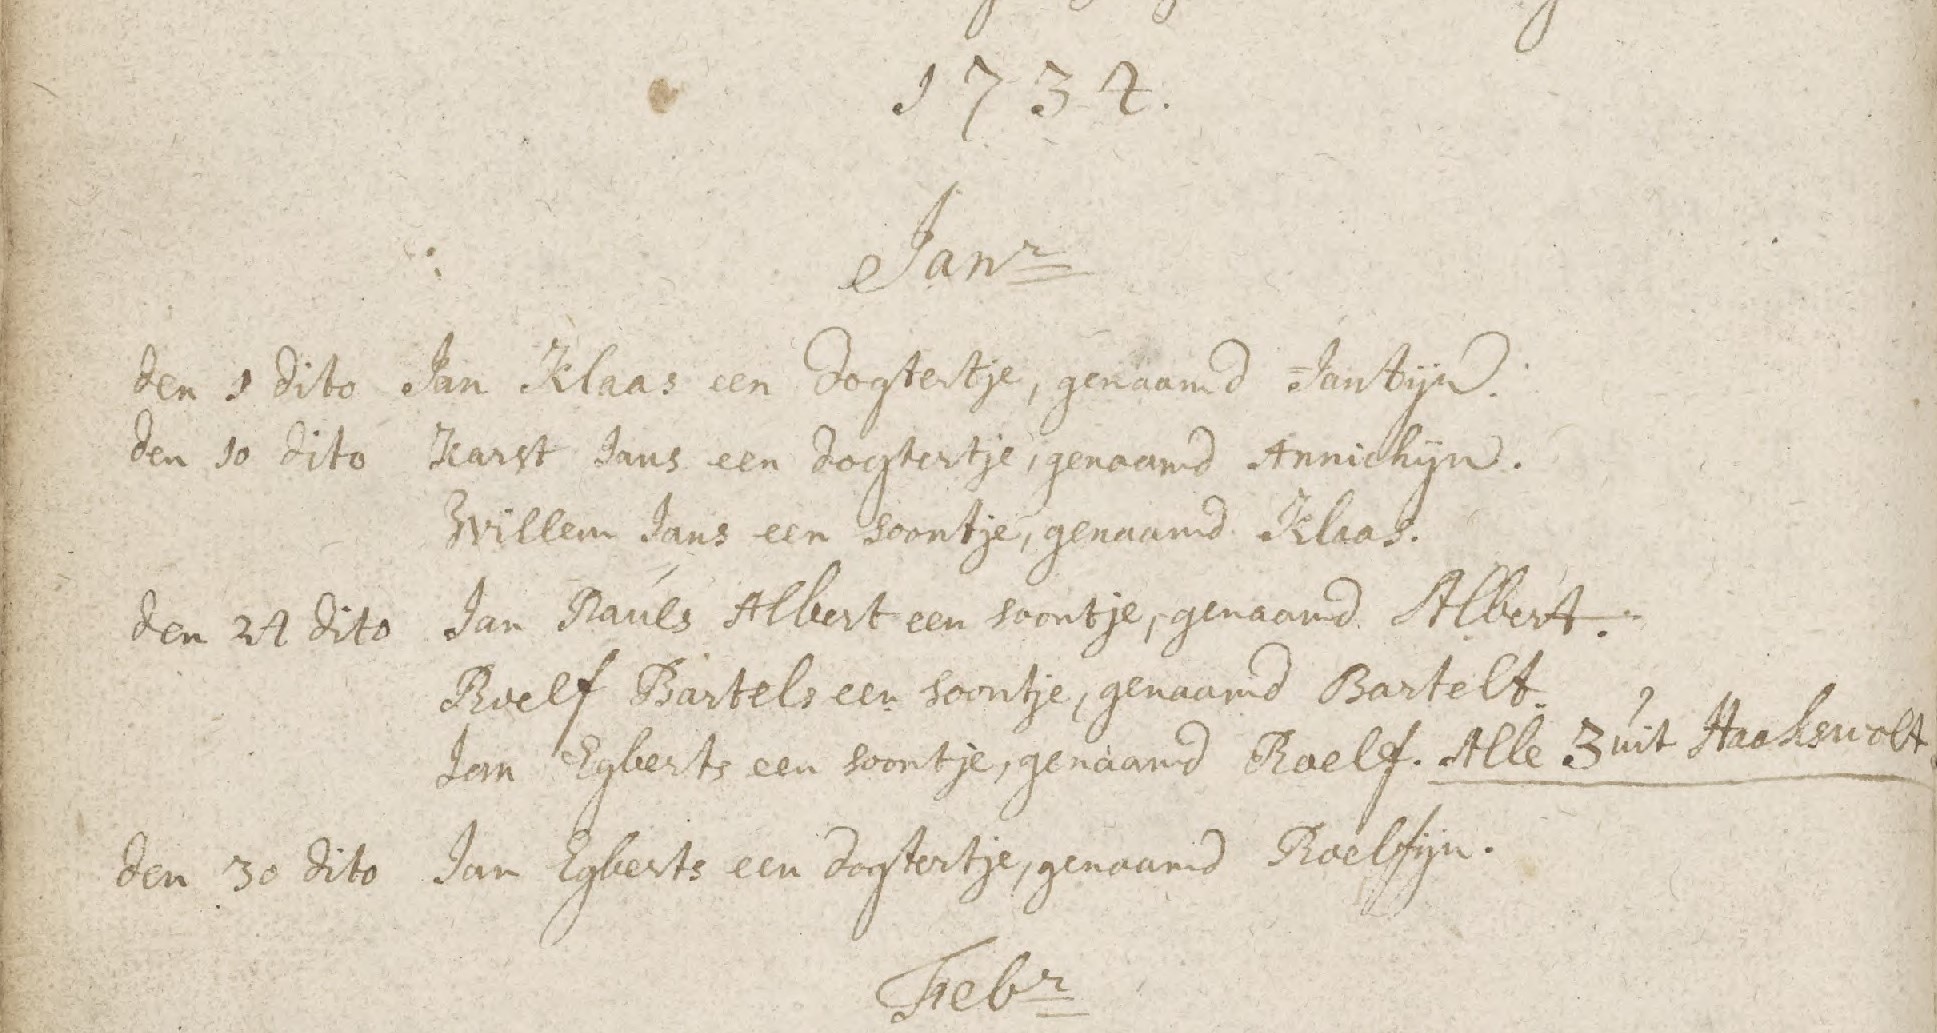 1734.
Janr
den 1 dito Jan Klaas een dogtertje, genaamd Jantijn.
den 10 dito Karst Jans een dogtertje, genaamd Annichijn.
Willem Jans een soontje, genaamd Klaas.
den 24 dito Jan Pauls Albert een soontje, genaamd Albert.
Roelf Bartels een soontje, genaamd Bartelt.
Jan Egberts een soontje, genaamd Roelf. Alle 3 uit Haakswolt.
den 30 dito Jan Egberts een dogtertje, genaamd Roelfijn.
Febr